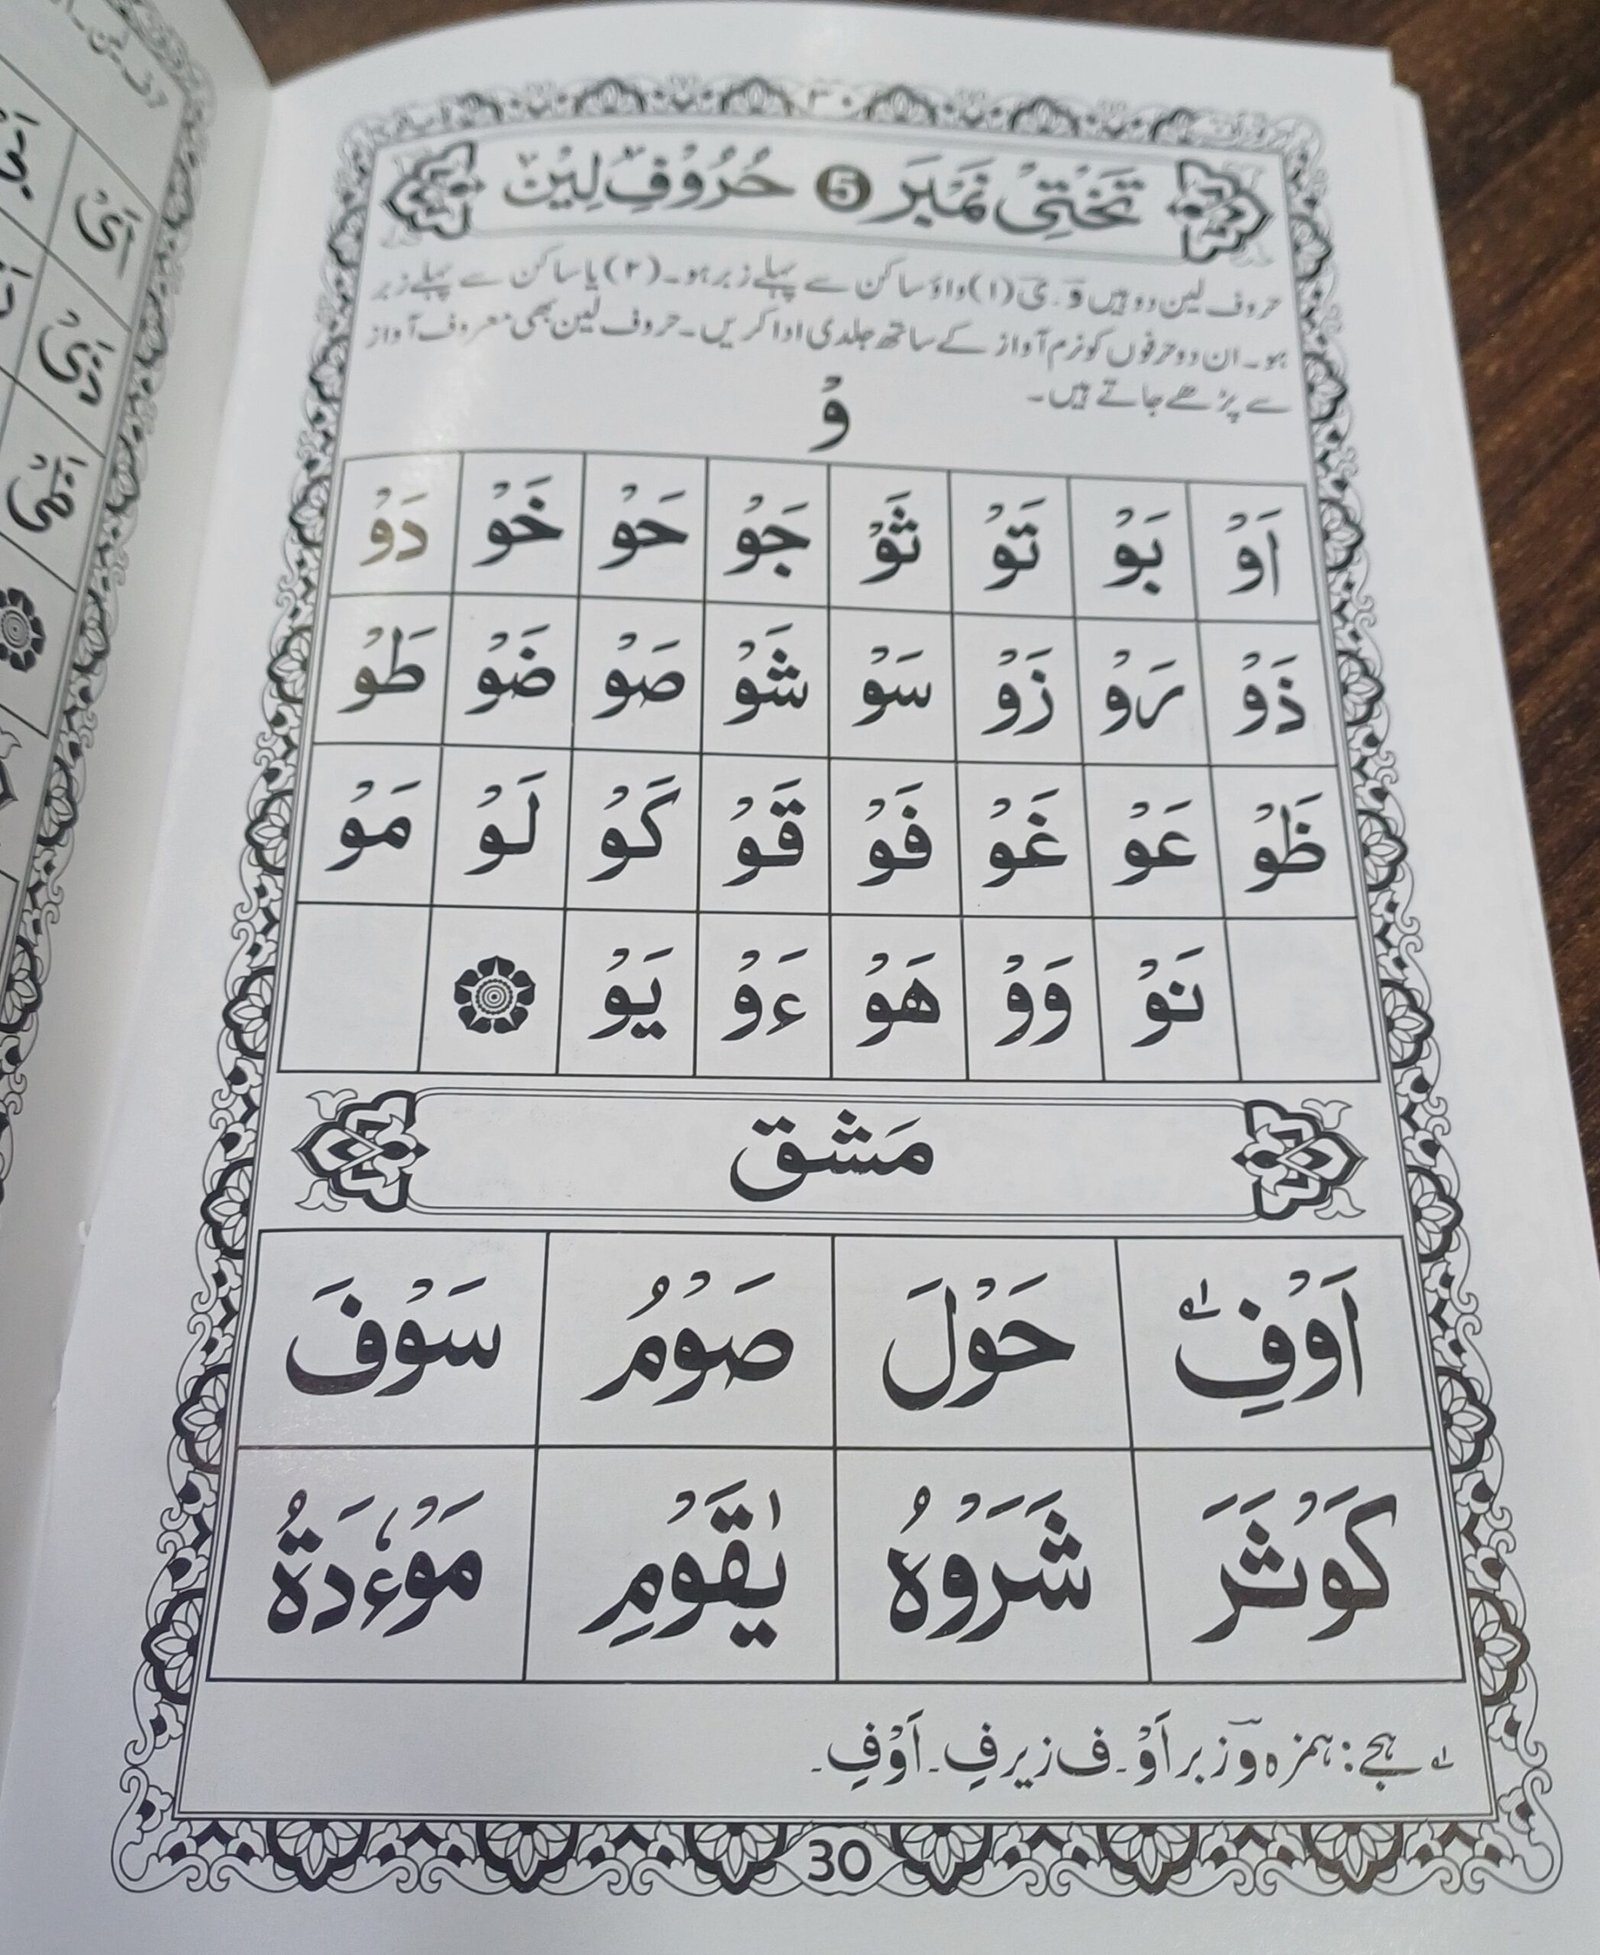 ۳۰
تَخْتِیْ نَمْبَر 5 حُرُوْفِ لِیْن
حروف لین دو ہیں وَ۔یَ (۱) واؤ ساکن سے پہلے زبر ہو۔ (۲) یا ساکن سے پہلے زبر
ہو۔ ان دو حرفوں کو نرم آواز کے ساتھ جلدی ادا کریں۔ حروف لین بھی معروف آواز
سے پڑھے جاتے ہیں۔
وْ
اَوْ بَوْ تَوْ ثَوْ جَوْ حَوْ خَوْ دَوْ
ذَوْ رَوْ زَوْ سَوْ شَوْ صَوْ ضَوْ طَوْ
ظَوْ عَوْ غَوْ فَوْ قَوْ كَوْ لَوْ مَوْ
نَوْ وَوْ هَوْ ءَوْ يَوْ
مَشق
اَوْفِ ؎ حَوْلَ صَوْمُ سَوْفَ
كَوْثَرَ شَرَوْهُ يٰقَوْمِ مَوْءٗدَةُ
؎ ہجے: ہمزہ و زبر اَوْ۔ ف زیر فِ۔ اَوْفِ۔
30
اَیْ
دَیْ